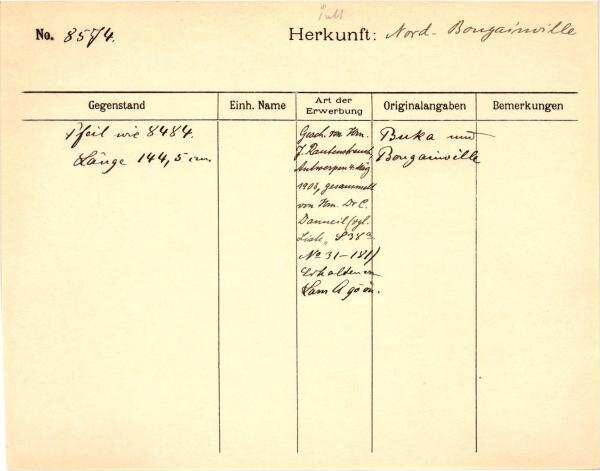 No. 8574.
Herkunft: Nord-Bougainville
Gegenstand
Einh. Name
Art der
Erwerbung
Originalangaben
Bemerkungen
Pfeil wie 8484.
Länge 144,5 cm.
Gesch. von Hrn.
J. Rautenstrauch,
Antwerpen
1903, gesammelt
von Hrn. Dr C.
Danneil (vgl.
Liste,
No 31-181)
Erhalten in
Buka und
Bougainville